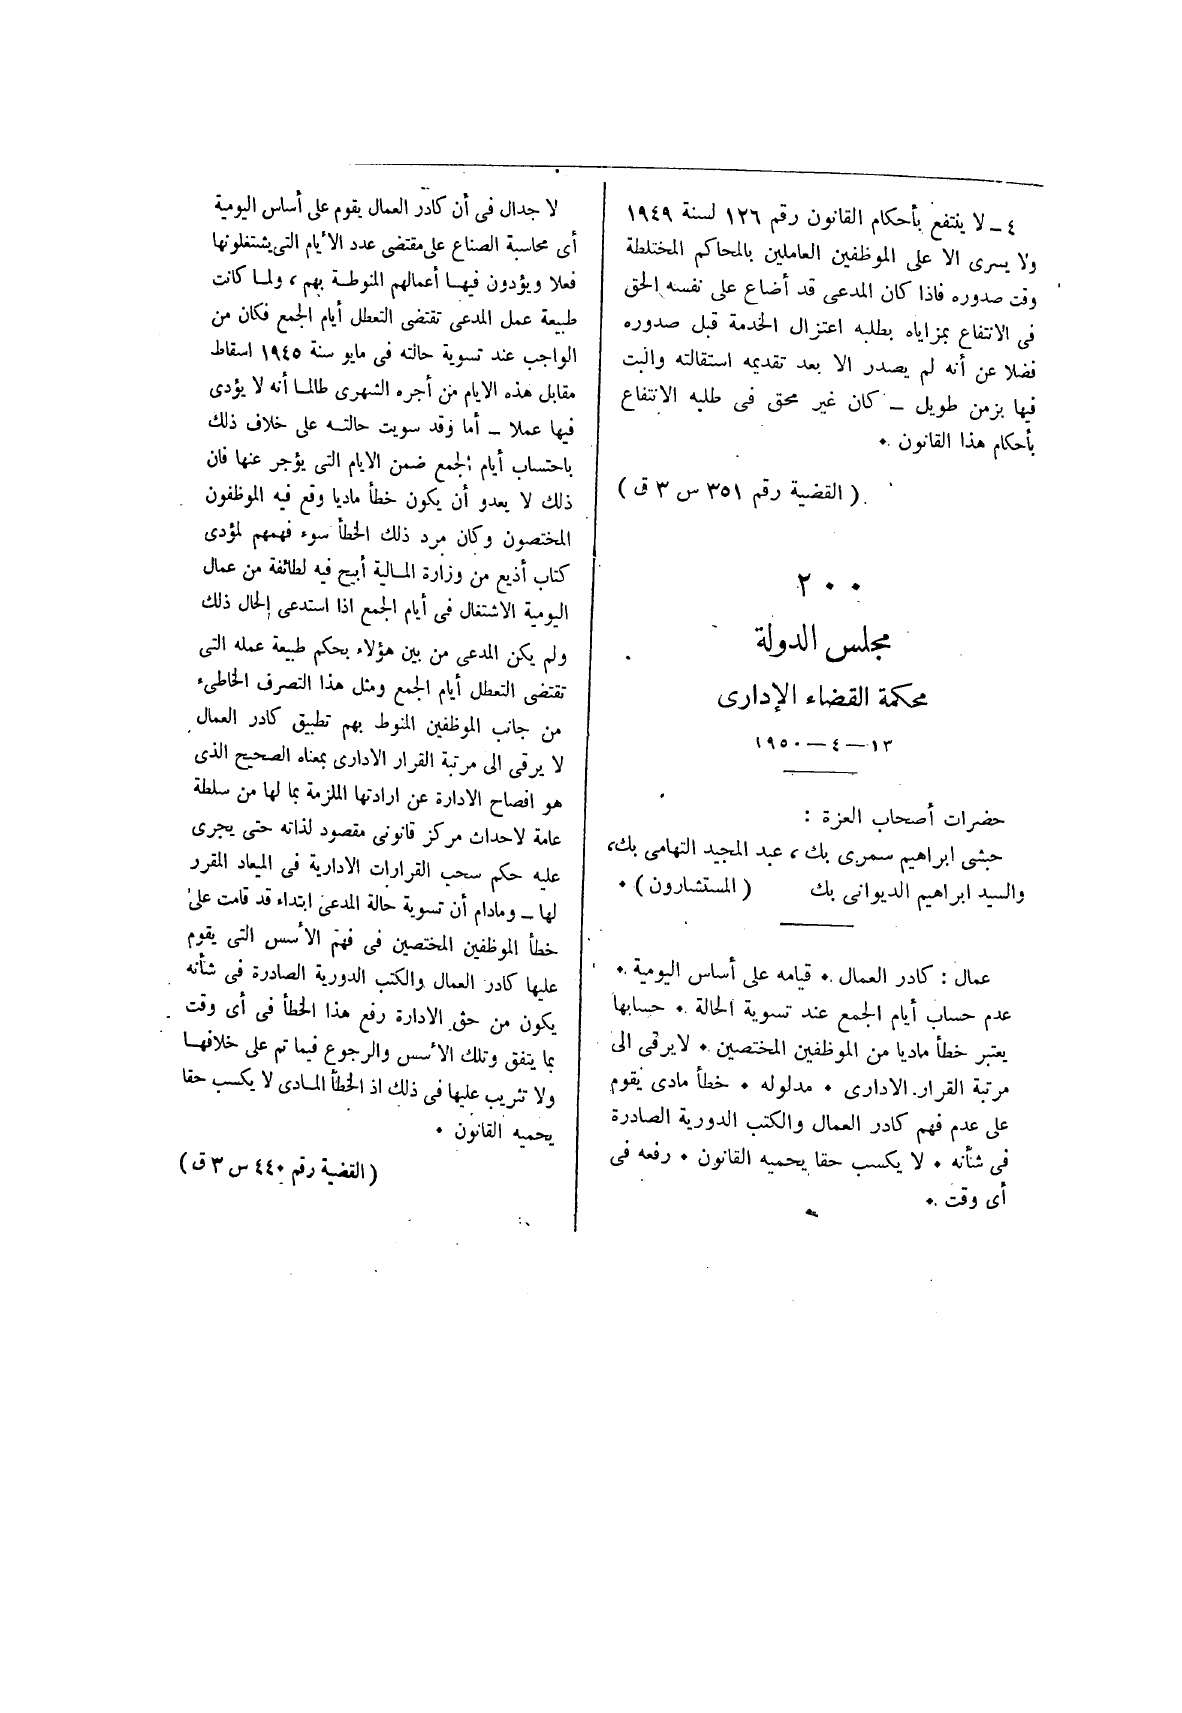 ٤ ــ لا ينتفع بأحكام القانون رقم ١٢٦ لسنة ١٩٤٩
ولا يسرى الا على الموظفين العاملين بالمحاكم المختلطة
وقت صدوره فاذا كان المدعى قد أضاع على نفسه الحق
فى الانتفاع بمزاياه بطلبه اعتزال الخدمة قبل صدوره
فضلا عن أنه لم يصدر الا بعد تقديمه استقالته والبت
فيها بزمن طويل ــ كان غير محق فى طلبه الانتفاع
بأحكام هذا القانون ٠
( القضية رقم ٣٥١ س ٣ ق )
٢٠٠
مجلس الدولة
محكمة القضاء الإدارى
١٣ – ٤ – ١٩٥٠
حضرات أصحاب العزة :
حبشى ابراهيم سمرى بك ، عبد المجيد التهامى بك،
والسيد ابراهيم الديوانى بك ( المستشارون ) ٠
عمال : كادر العمال ٠ قيامه على أساس اليومية ٠
عدم حساب أيام الجمع عند تسوية الحالة ٠ حسابها
يعتبر خطأ ماديا من الموظفين المختصين ٠ لايرقى الى
مرتبة القرار الادارى ٠ مدلوله ٠ خطأ مادى يقوم
على عدم فهم كادر العمال والكتب الدورية الصادرة
فى شأنه ٠ لا يكسب حقا يحميه القانون ٠ رفعه فى
أى وقت ٠
لا جدال فى أن كادر العمال يقوم على أساس اليومية
أى محاسبة الصناع على مقتضى عدد الأيام التى يشتغلونها
فعلا ويؤدون فيها أعمالهم المنوطة بهم ، ولما كانت
طبيعة عمل المدعى تقتضى التعطل أيام الجمع فكان من
الواجب عند تسوية حالته فى مايو سنة ١٩٤٥ اسقاط
مقابل هذه الايام من أجره الشهرى طالما أنه لا يؤدى
فيها عملا ــ أما وقد سويت حالته على خلاف ذلك
باحتساب أيام الجمع ضمن الايام التى يؤجر عنها فان
ذلك لا يعدو أن يكون خطأ ماديا وقع فيه الموظفون
المختصون وكان مرد ذلك الخطأ سوء فهمهم لمؤدى
كتاب أذيع من وزارة المالية أبيح فيه لطائفة من عمال
اليومية الاشتغال فى أيام الجمع اذا استدعى الحال ذلك
ولم يكن المدعى من بين هؤلاء بحكم طبيعة عمله التى
تقتضى التعطل أيام الجمع ومثل هذا التصرف الخاطىء
من جانب الموظفين المنوط بهم تطبيق كادر العمال
لا يرقى الى مرتبة القرار الادارى بمعناه الصحيح الذى
هو افصاح الادارة عن ارادتها الملزمة بما لها من سلطة
عامة لاحداث مركز قانونى مقصود لذاته حتى يجرى
عليه حكم سحب القرارات الادارية فى الميعاد المقرر
لها ــ ومادام أن تسوية حالة المدعى ابتداء قد قامت على
خطأ الموظفين المختصين فى فهم الأسس التى يقوم
عليها كادر العمال والكتب الدورية الصادرة فى شأنه
يكون من حق الادارة رفع هذا الخطأ فى أى وقت
بما يتفق وتلك الأسس والرجوع فيما تم على خلافها
ولا تثريب عليها فى ذلك اذ الخطأ المادى لا يكسب حقا
يحميه القانون ٠
( القضية رقم ٤٤٠ س ٣ ق )